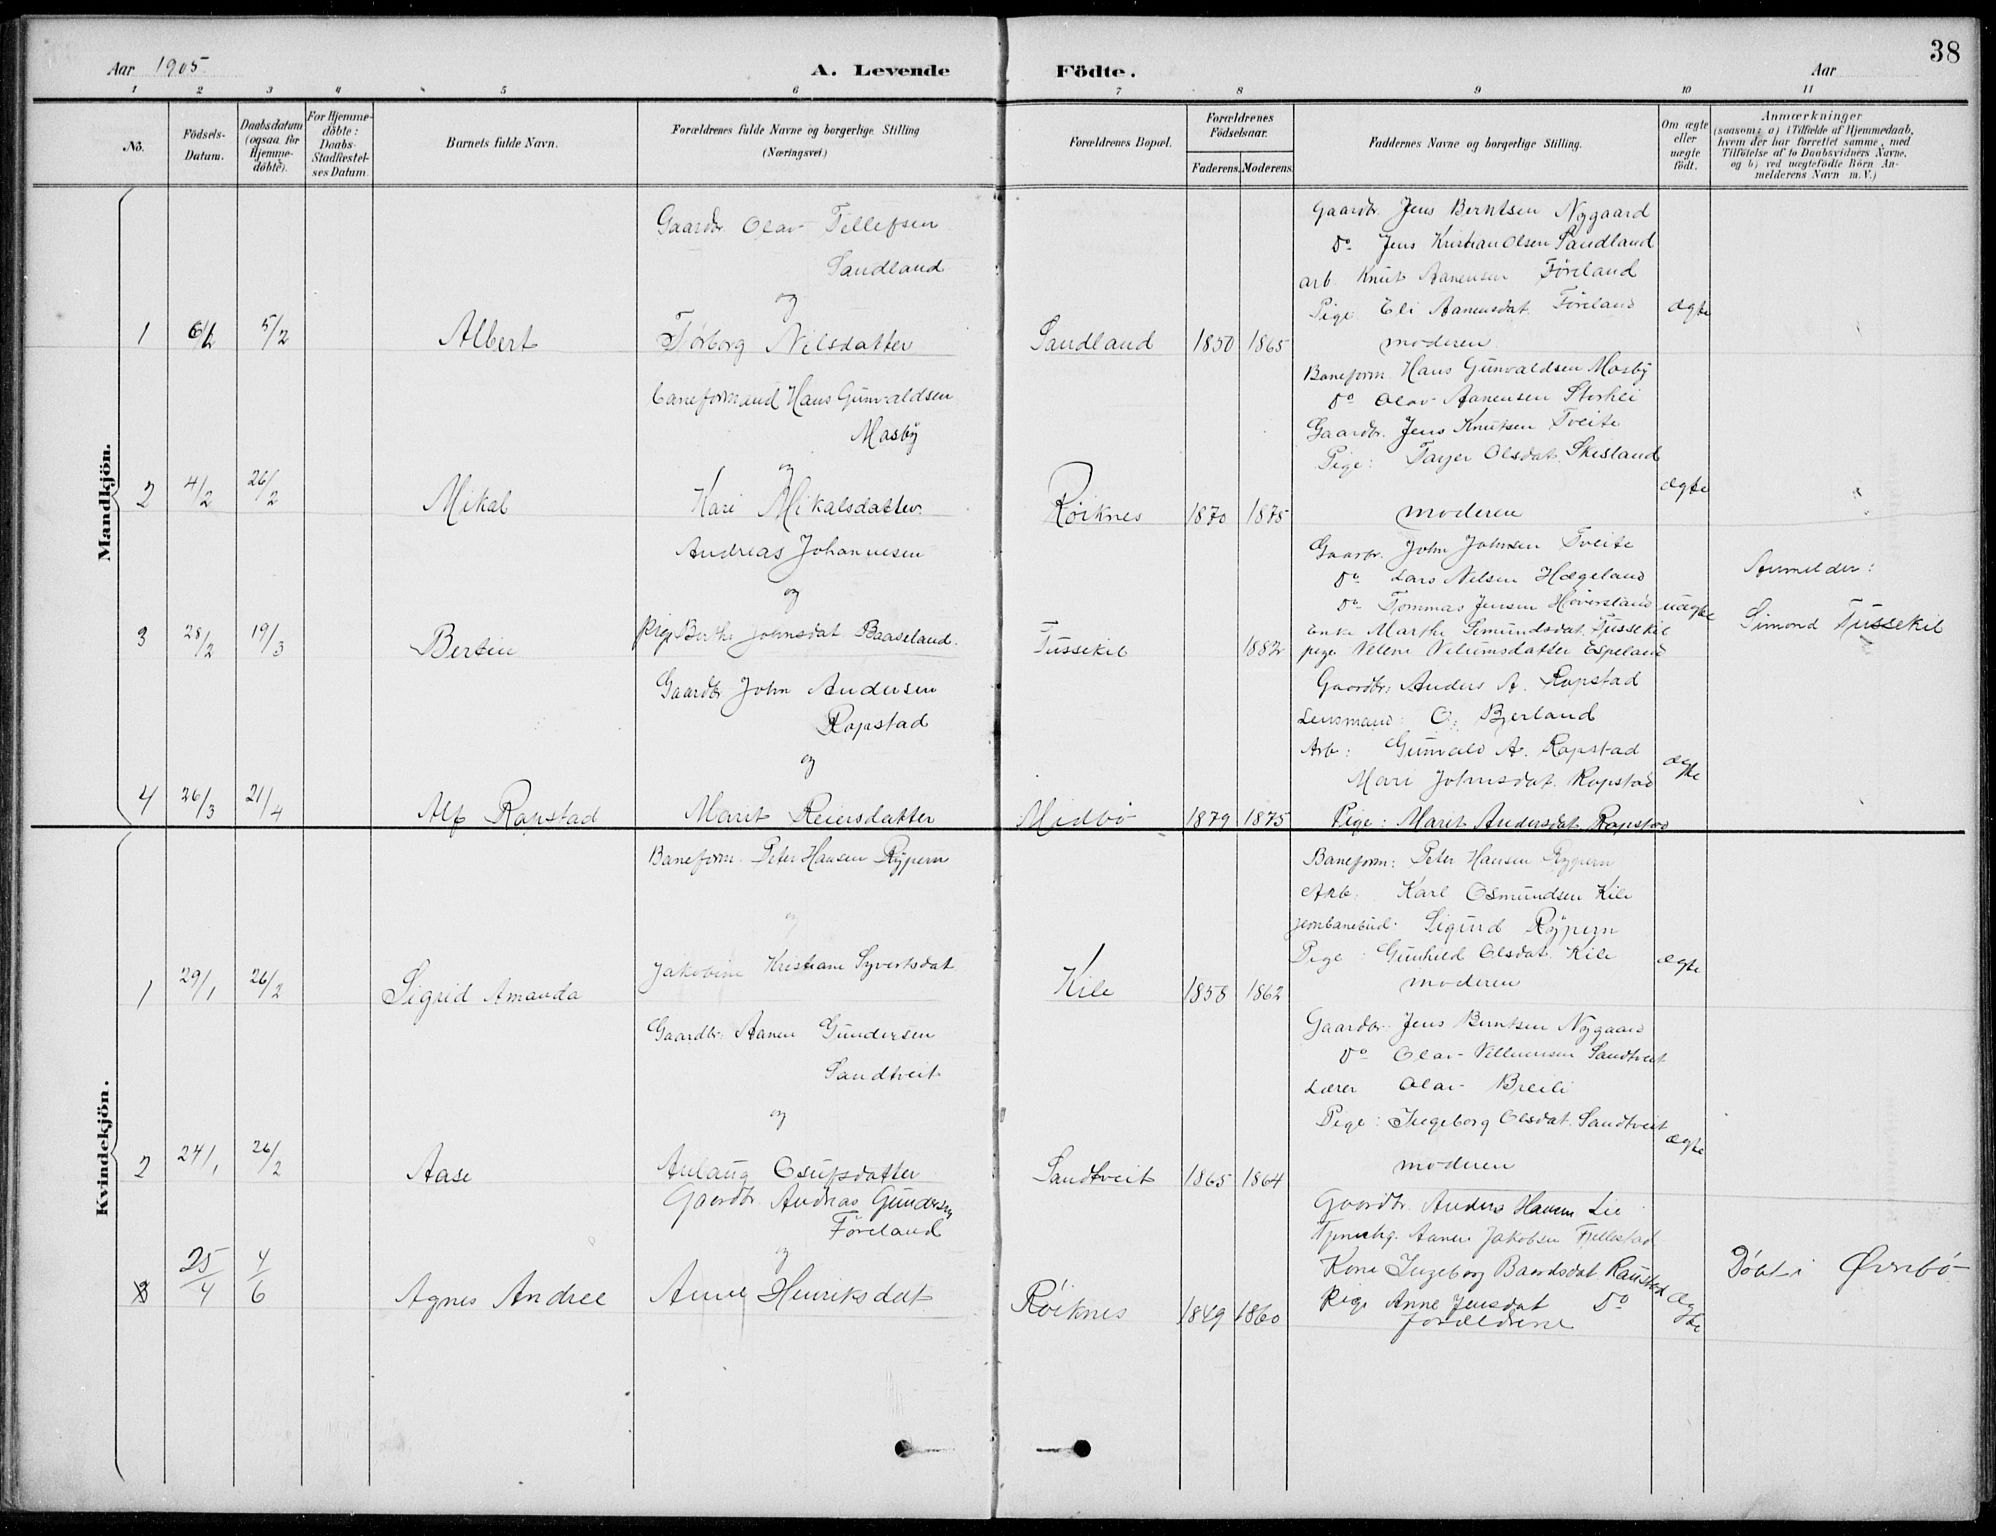 38
Aar 1905.
A. Levende Födte.
Aar
1 2 3 4 5 6 7 8 9 10 11
No.
Födsels-Datum.
Daabsdatum (ogsaa for Hjemmedöbte).
For Hjemmedöbte: Daabs-Stadfæstelses Datum.
Barnets fulde Navn.
Forældrenes fulde Navne og borgerlige Stilling (Næringsvei.)
Forældrenes Bopæl.
Forældrenes Födselsaar.
Faderens. Moderens.
Faddernes Navne og borgerlige Stilling.
Om ægte eller uægte födt.
Anmærkninger
(saasom: a) i Tilfælde af Hjemmedaab, hvem der har forrettet samme, med Tilföielse af to Daabsvidners Navne, og b) ved uægtefödte Börn Anmelderens Navn m. V.)
Mandkjön.
1 5/2 Albert
Gaardbr. Olav Tellefsen
Sandland
og
Torborg Nilsdatter
Sandland 1850 1865
Gaardbr. Jens Berntsen Nygaard
Do Jens Kristian Olsen Sandland
arb. Knut Aanensen Föreland
Pige Eli Aanensdat. Föreland
moderen
ægte
2 4/2 26/2 Mikal
Baneformand Hans Gunvaldsen
Mosby
og
Kari Mikalsdatter.
Röiknes 1870 1875
Baneform. Hans Gunvaldsen Mosby
Do Olav Aanensen Storhei
Gaardbr. Jens Knutsen Tveite
Pige: Olsdat. Skisland
moderen
ægte
3 28/2 19/3 Bertin
Andreas Johannesen
og
pige Berthe Johnsdat. Baaseland.
Tussekil 1882
Gaardbr. John Johnsen Tveite
Do Lars Nilsen Hægeland
Do Tommas Jensen Höversland
Enke Marthe Simundsdat. Tussekil
pige Espeland
uægte
Anmelder:
Simond Tussekil
4 26/3 21/4 Alf Rapstad
Gaardbr John Andersen
Rapstad
og
Marit Reiersdatter
Midbö 1879 1875
Gaardbr: Anders A. Rapstad
Lensmand: O. Bjerland
Arb: Gunvald A. Rapstad
Mari Johnsdat. Rapstad
Pige: Marit Andersdat Rapstad
ægte
Kvindekjön.
1 29/1 26/2 Sigrid Amanda
Baneform. Peter Hansen Rypern
og
Jakobine Kristiane Syvertsdat
Kile 1858 1862
Baneform: Peter Hansen Rypern
Arb. Karl Osmundsen Kile
jernbanebud: Sigurd Rypern
Pige: Gunhild Olsdat. Kile
moderen
ægte
2 24/1 26/2 Aase
Gaardbr: Aanen Gundersen
Sandtveit
og
Aslaug Osufsdatter
Sandtveit 1865 1864
Gaardbr. Jens Berntsen Nygaard
Do Olav Sandtveit
Lærer Olav Breili
Pige: Ingeborg Olsdat. Sandtveit
moderen
ægte
3 25/4 4/6 Agnes Andree
Gaardbr. Andreas Gundersen
Föreland
og
Anne Henriksdat
Röiknes 1849 1860
Gaardbr. Anders Hansen Lie
Aanen Jakobsen Fjellestad
Kone Ingeborg Baardsdat Raustad
Pige Anne Jensdat Do
forældrene
ægte
Döbt i Øvrebö